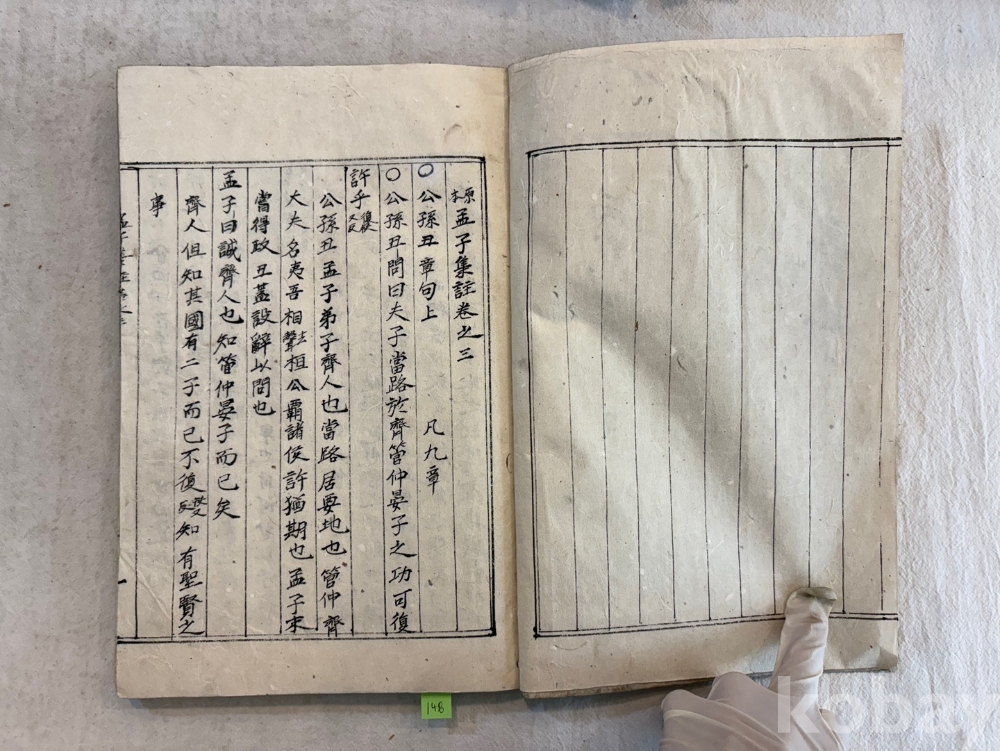 原本孟子集註卷之三
○公孫丑章句上 凡九章
○公孫丑問曰夫子當路於齊管仲晏子之功可復
許乎
公孫丑孟子弟子齊人也當路居要地也管仲齊
大夫名夷吾相去聲桓公霸諸侯許猶期也孟子未
嘗得政丑蓋設辭以問也
孟子曰誠齊人也知管仲晏子而已矣
齊人但知其國有二子而已不復知有聖賢之
事
148
kobay